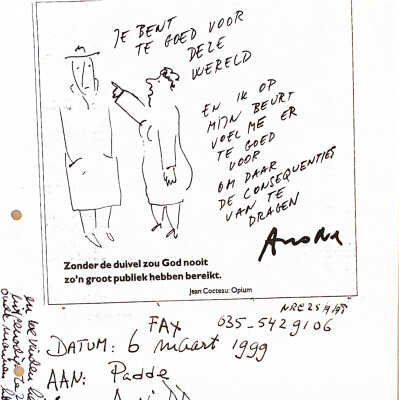 JE BENT
TE GOED VOOR
DEZE
WERELD
EN IK OP
MIJN BEURT
VOEL ME ER
TE GOED
VOOR
OM DAAR
DE CONSEQUENTIES
VAN TE
DRAGEN
Zonder de duivel zou God nooit
zo'n groot publiek hebben bereikt.
Jean Cocteau: Opium
NRC 25/4/98
FAX 035-5429106
DATUM: 6 maart 1999
AAN: Padde
en bevinden